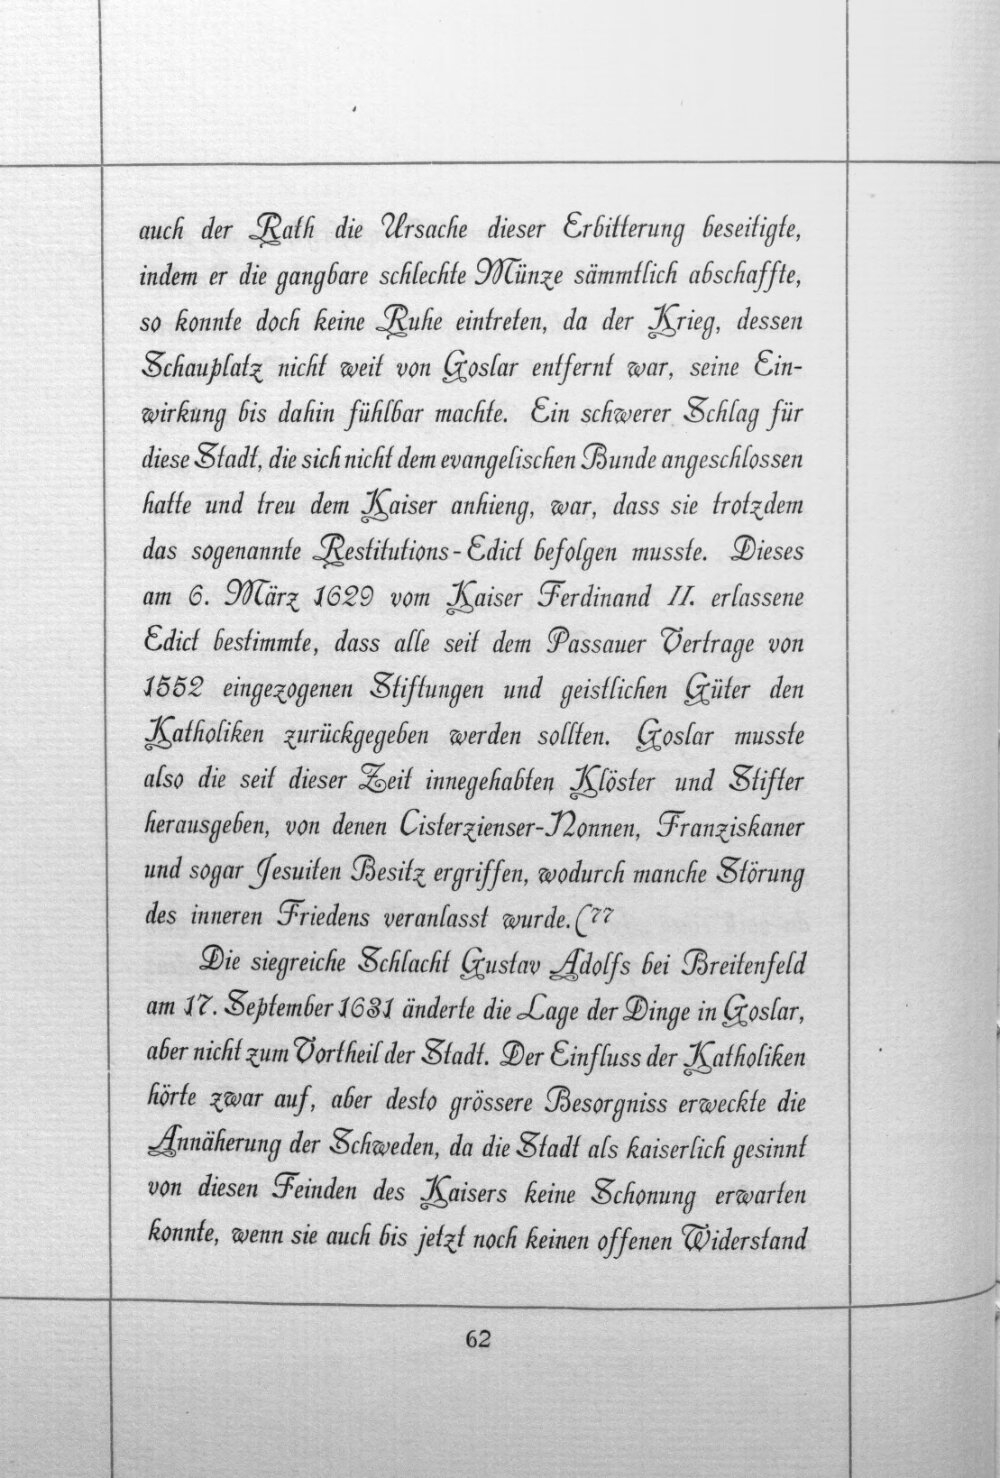 auch der Rath die Ursache dieser Erbitterung beseitigte,
indem er die gangbare schlechte Münze sämmtlich abschaffte,
so konnte doch keine Ruhe eintreten, da der Krieg, dessen
Schauplatz nicht weit von Goslar entfernt war, seine Ein-
wirkung bis dahin fühlbar machte. Ein schwerer Schlag für
diese Stadt, die sich nicht dem evangelischen Bunde angeschlossen
hatte und treu dem Kaiser anhieng, war, dass sie trotzdem
das sogenannte Restitutions-Edict befolgen musste. Dieses
am 6. März 1629 vom Kaiser Ferdinand II. erlassene
Edict bestimmte, dass alle seit dem Passauer Vertrage von
1552 eingezogenen Stiftungen und geistlichen Güter den
Katholiken zurückgegeben werden sollten. Goslar musste
also die seit dieser Zeit innegehabten Klöster und Stifter
herausgeben, von denen Cisterzienser-Nonnen, Franziskaner
und sogar Jesuiten Besitz ergriffen, wodurch manche Störung
des inneren Friedens veranlasst wurde.(77
Die siegreiche Schlacht Gustav Adolfs bei Breitenfeld
am 17. September 1631 änderte die Lage der Dinge in Goslar,
aber nicht zum Vortheil der Stadt. Der Einfluss der Katholiken
hörte zwar auf, aber desto grössere Besorgniss erweckte die
Annäherung der Schweden, da die Stadt als kaiserlich gesinnt
von diesen Feinden des Kaisers keine Schonung erwarten
konnte, wenn sie auch bis jetzt noch keinen offenen Widerstand
62